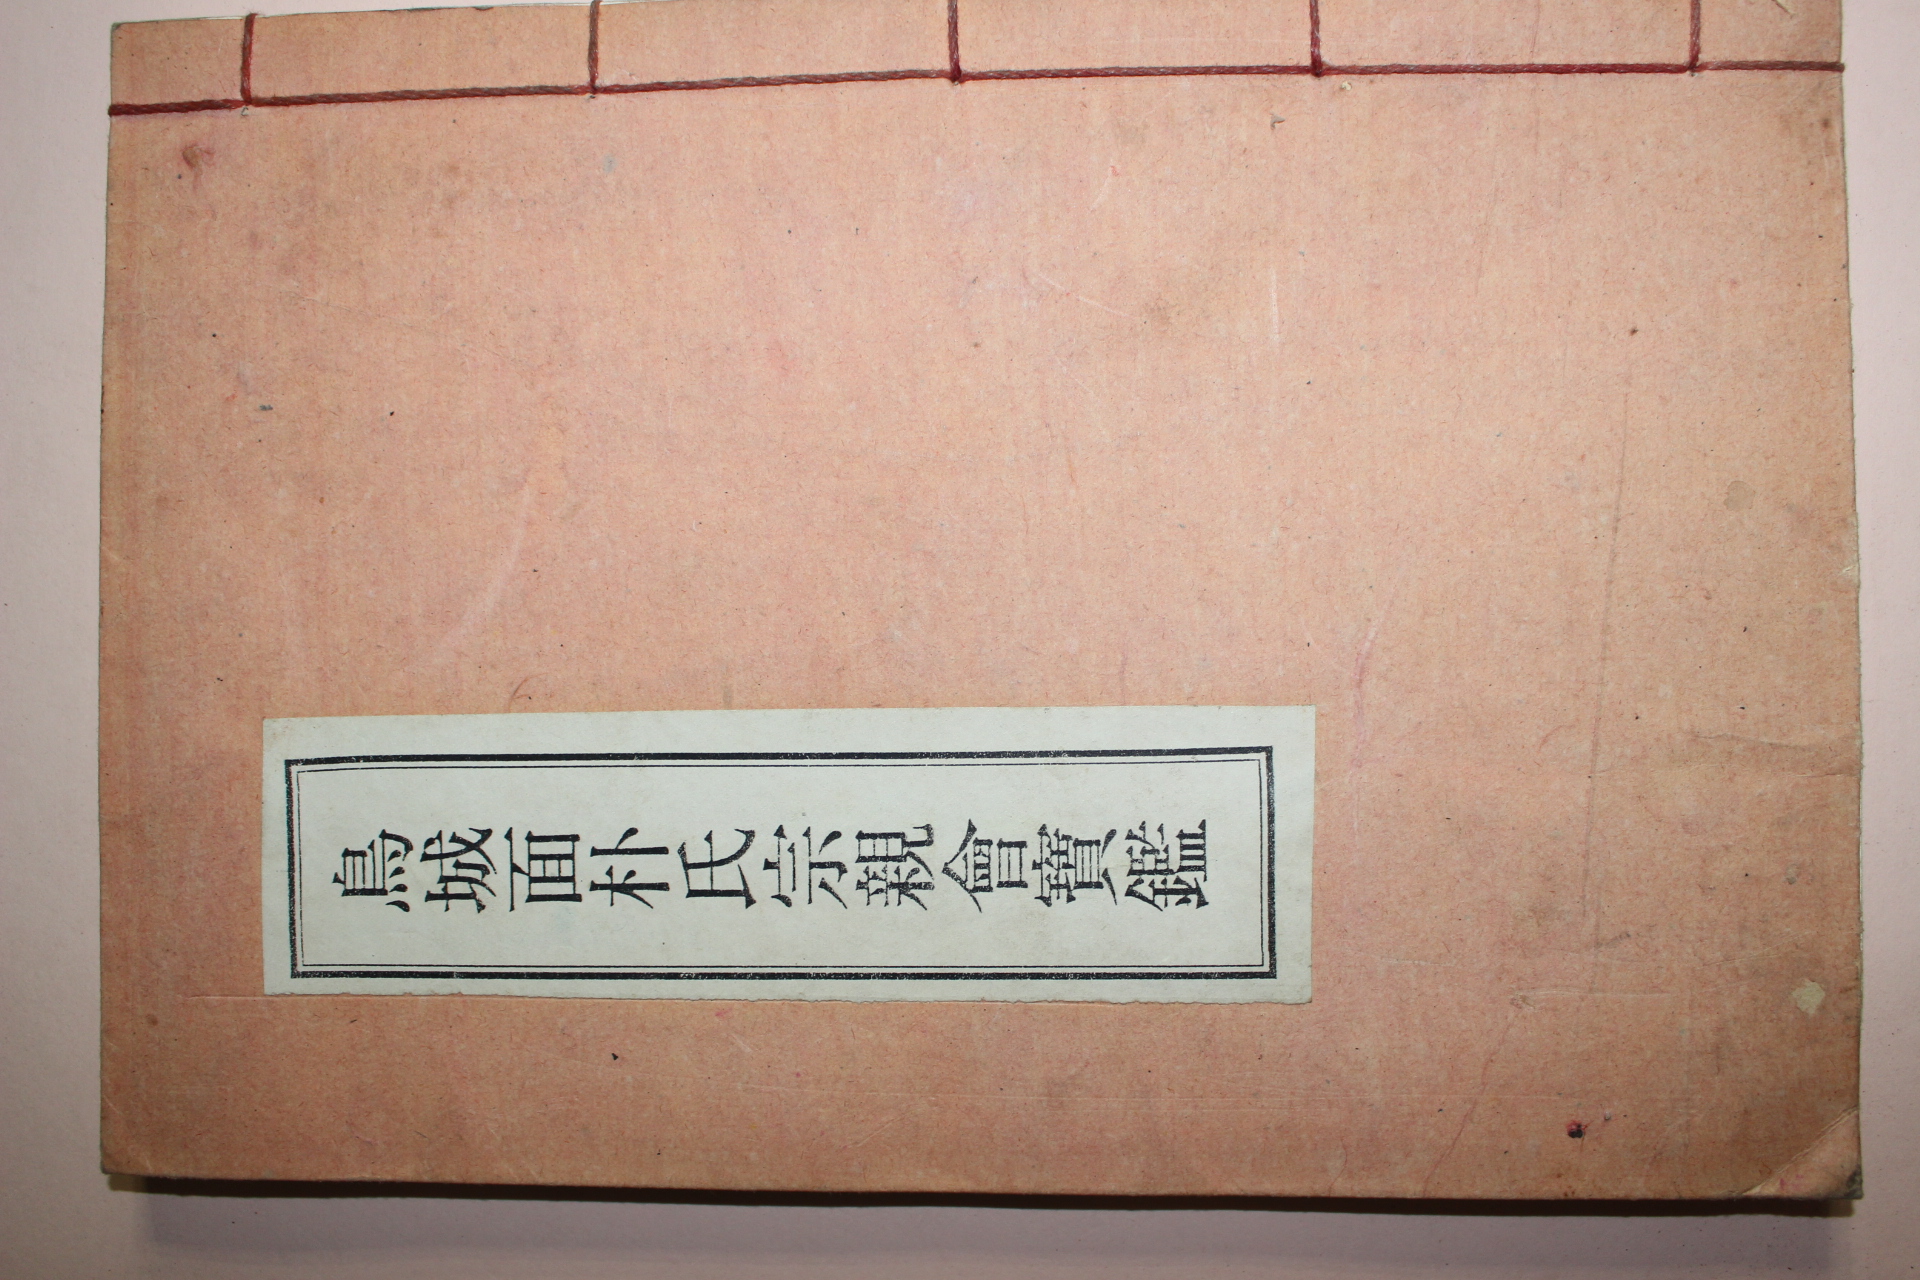 鳥城面朴氏宗親會寶鑑